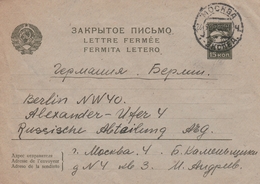 ЗАКРЫТОЕ ПИСЬМО.
LETTRE FERMÉE
FERMITA LETERO
МОСКВА
15 КОП
Германия. Берлин.
Berlin NW40.
Alexander-Ufer 4
Russische Abteilung
Адрес отправителя
Adresse de l'envoyeur
Adreso de la sendinto
г. Москва-4 Б.
д N4 кв. 3. И. Андреев.